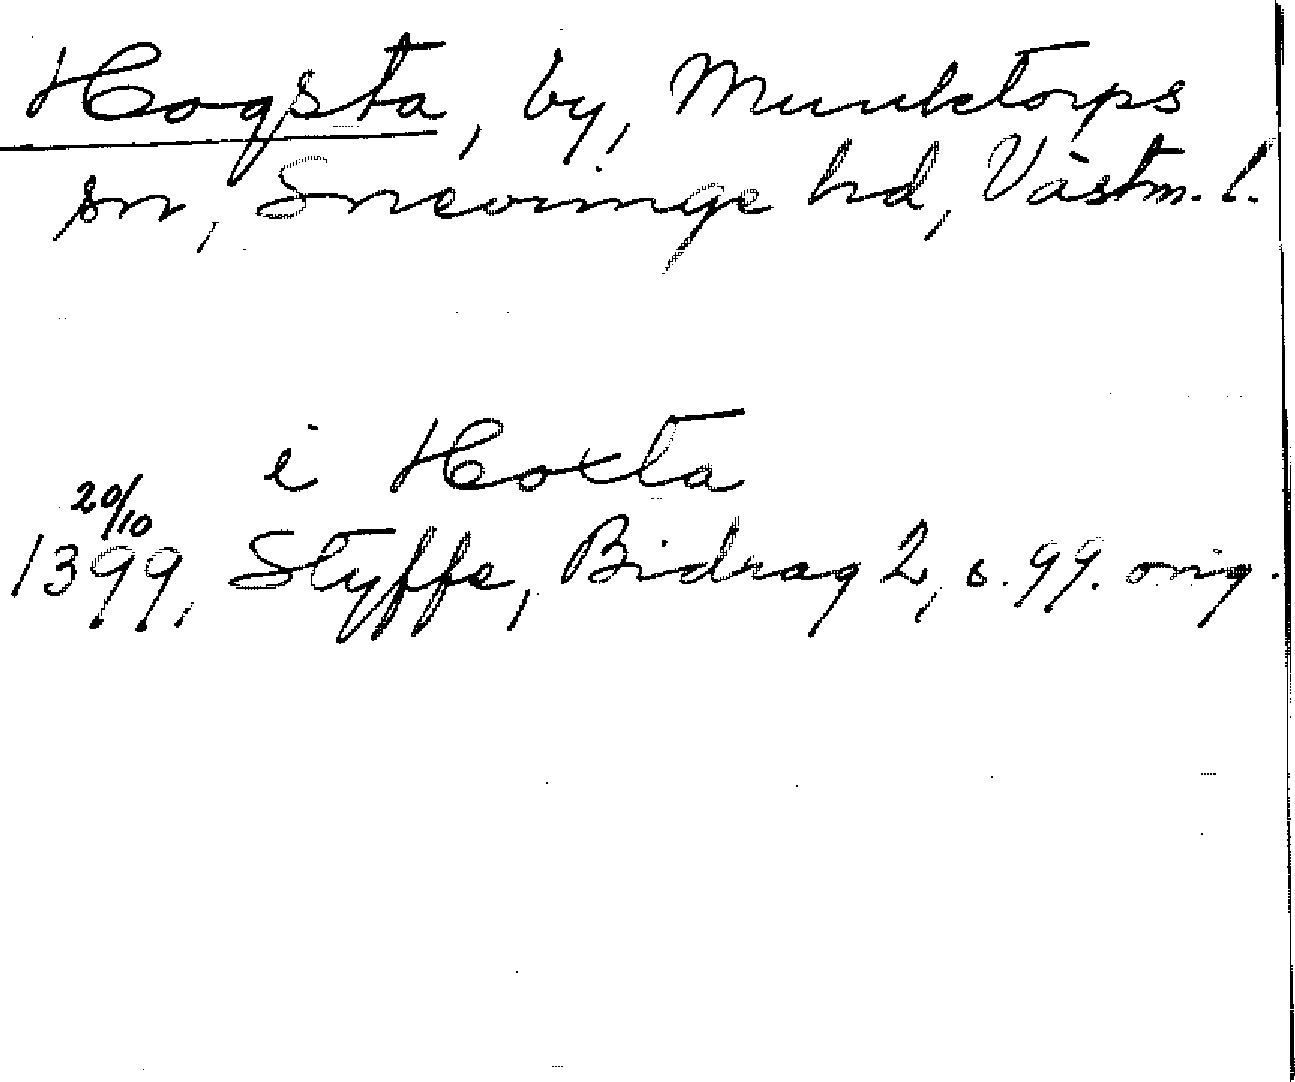 Hogsta, by, Munktorps
sn, Snevringe hd, Västm. l.
i Hoxta
20/10
1399, Styffe, Bidrag 2, s. 99. orig.